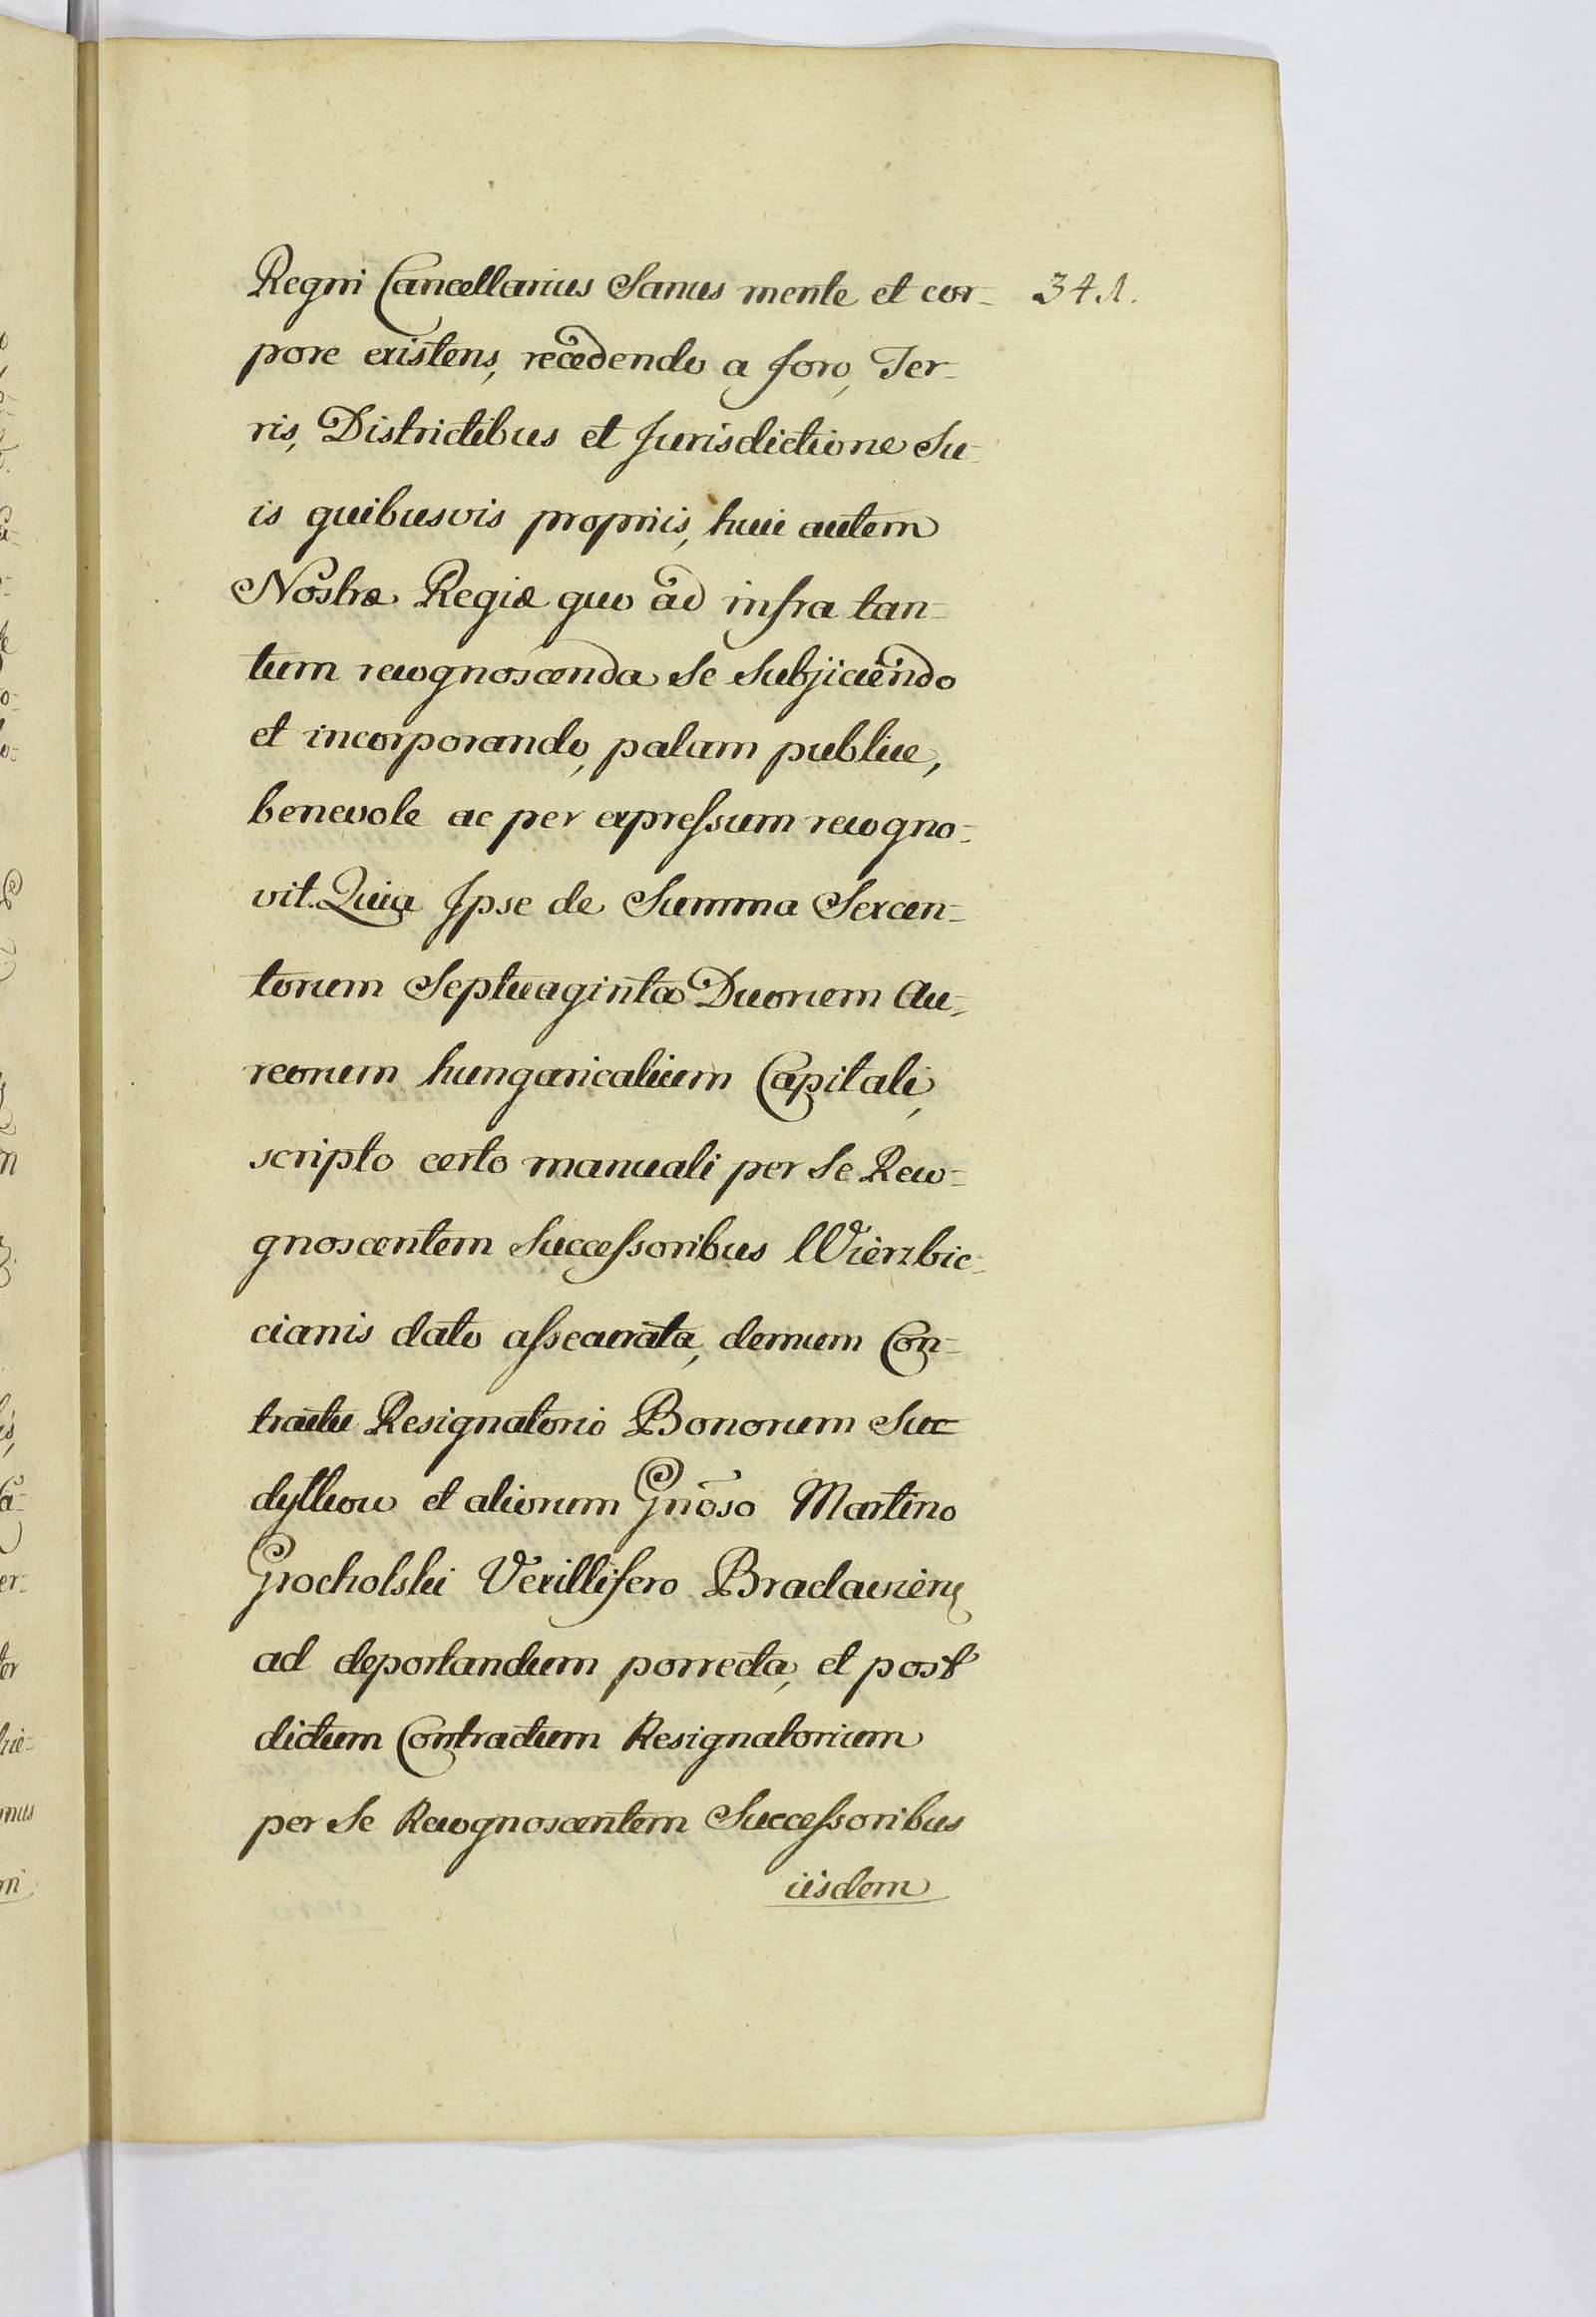 Regni Cancellarius Sanus mente et cor- 341.
pore existens, recedendo a foro, Ter-
ris, Districtibus et Jurisdictione Su-
is quibusvis propriis, huic autem
Nostræ Regiæ quo ad infra tan-
tum recognoscenda se subjiciendo
et incorporando, palam publice,
benevole ac per expreſsum recogno-
vit. Quia Ipse de Summa Sexcen-
torum Septuaginta Duorum Au-
reorum hungaricalium Capitali,
scripto certo manuali per Se Reco-
gnoscentem Succeſsoribus Wierzbic-
cianis dato aſsecurata, demum Con-
tractu Resignatorio Bonorum Su-
dyłkow et aliorum Gnōso Martino
Grocholski Vexillifero Braclavien
ad deportandum porrecta, et post
dictum Contractum Resignatorium
per Se Recognoscentem Succeſsoribus
iisdem